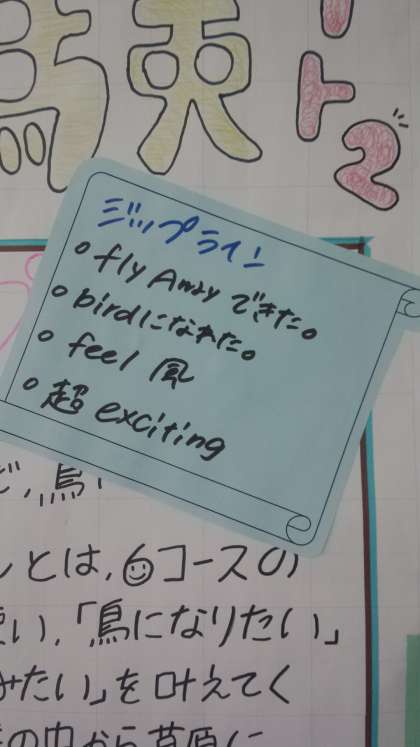 ト2
ジップライン
fly Away できた。
birdになれた。
feel 風
超 exciting
とは,6コースの
い,「鳥になりたい」
みたい」を叶えてく
の中から草原に